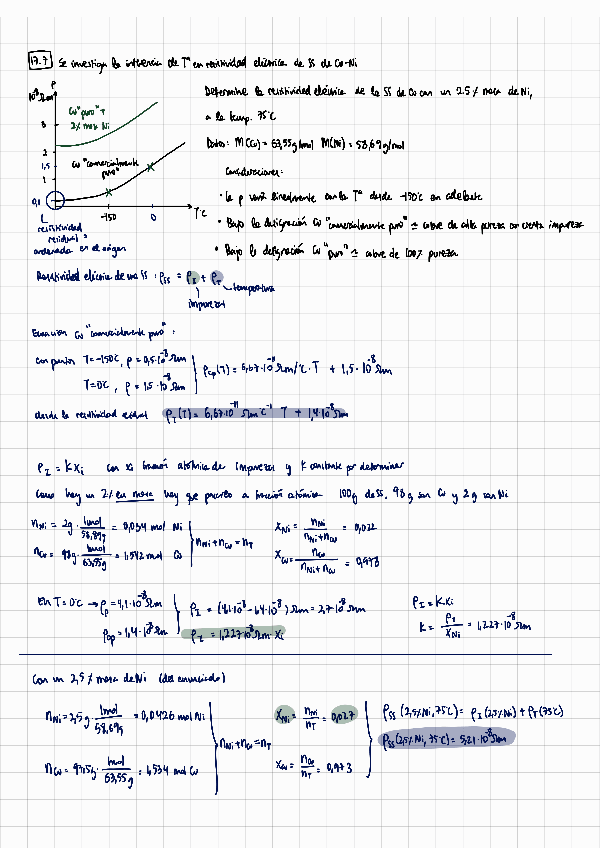 17.7 Se investiga la influencia de Tª en resistividad eléctrica de SS de Cu-Ni
ρ
10⁻⁸ Ωm
3
2
1,5
1
0,1
Cu "puro" +
2% masa Ni
Cu "comercialmente
puro"
-150
0
T ºC
resistividad
residual =
ordenada en el origen
Determine la resistividad eléctrica de la SS de Cu con un 2.5% masa de Ni,
a la temp. 75ºC
Datos: M(Cu) = 63,55 g/mol M(Ni) = 58,69 g/mol
Consideraciones:
• La ρ varía linealmente con la Tª desde -150ºC en adelante
• Bajo la designación Cu "comercialmente puro" = cobre de alta pureza con cierta impureza
• Bajo la designación Cu "puro" = cobre de 100% pureza.
Resistividad eléctrica de una SS : ρss = ρI + ρT
temperatura
impureza
Ecuación Cu "comercialmente puro" :
con puntos T=-150ºC, ρ = 0,5·10⁻⁸ Ωm
T=0ºC, ρ = 1,5·10⁻⁸ Ωm
ρcp(T) = 6,67·10⁻¹¹ Ωm/ºC · T + 1,5·10⁻⁸ Ωm
desde la resistividad residual ρT(T) = 6,67·10⁻¹¹ Ωm ºC⁻¹ T + 1,4·10⁻⁸ Ωm
ρI = K Xi con Xi fracción atómica de impurezas y K constante por determinar
Como hay un 2% en masa hay que pasarlo a fracción atómica 100g de SS. 98g son Cu y 2g son Ni
nNi = 2g · 1mol/58,69g = 0,034 mol Ni
nCu = 98g · 1mol/63,55g = 1,542 mol Cu
nNi + nCu = nT
XNi = nNi/(nNi+nCu) = 0,022
XCu = nCu/(nNi+nCu) = 0,978
En T=0ºC → ρp = 4,1·10⁻⁸ Ωm
ρcp = 1,4·10⁻⁸ Ωm
ρI = (4,1·10⁻⁸ - 1,4·10⁻⁸) Ωm = 2,7·10⁻⁸ Ωm
ρI = 1,227·10⁻⁸ Ωm · Xi
ρI = K Xi
K = ρI/XNi = 1,227·10⁻⁸ Ωm
Con un 2,5% masa de Ni (del enunciado)
nNi = 2,5g · 1mol/58,69g = 0,0426 mol Ni
nCu = 97,5g · 1mol/63,55g = 1,534 mol Cu
nNi + nCu = nT
XNi = nNi/nT = 0,027
XCu = nCu/nT = 0,973
ρss (2,5% Ni, 75ºC) = ρI (2,5% Ni) + ρT (75ºC)
ρss (2,5% Ni, 75ºC) = 5,21·10⁻⁸ Ωm